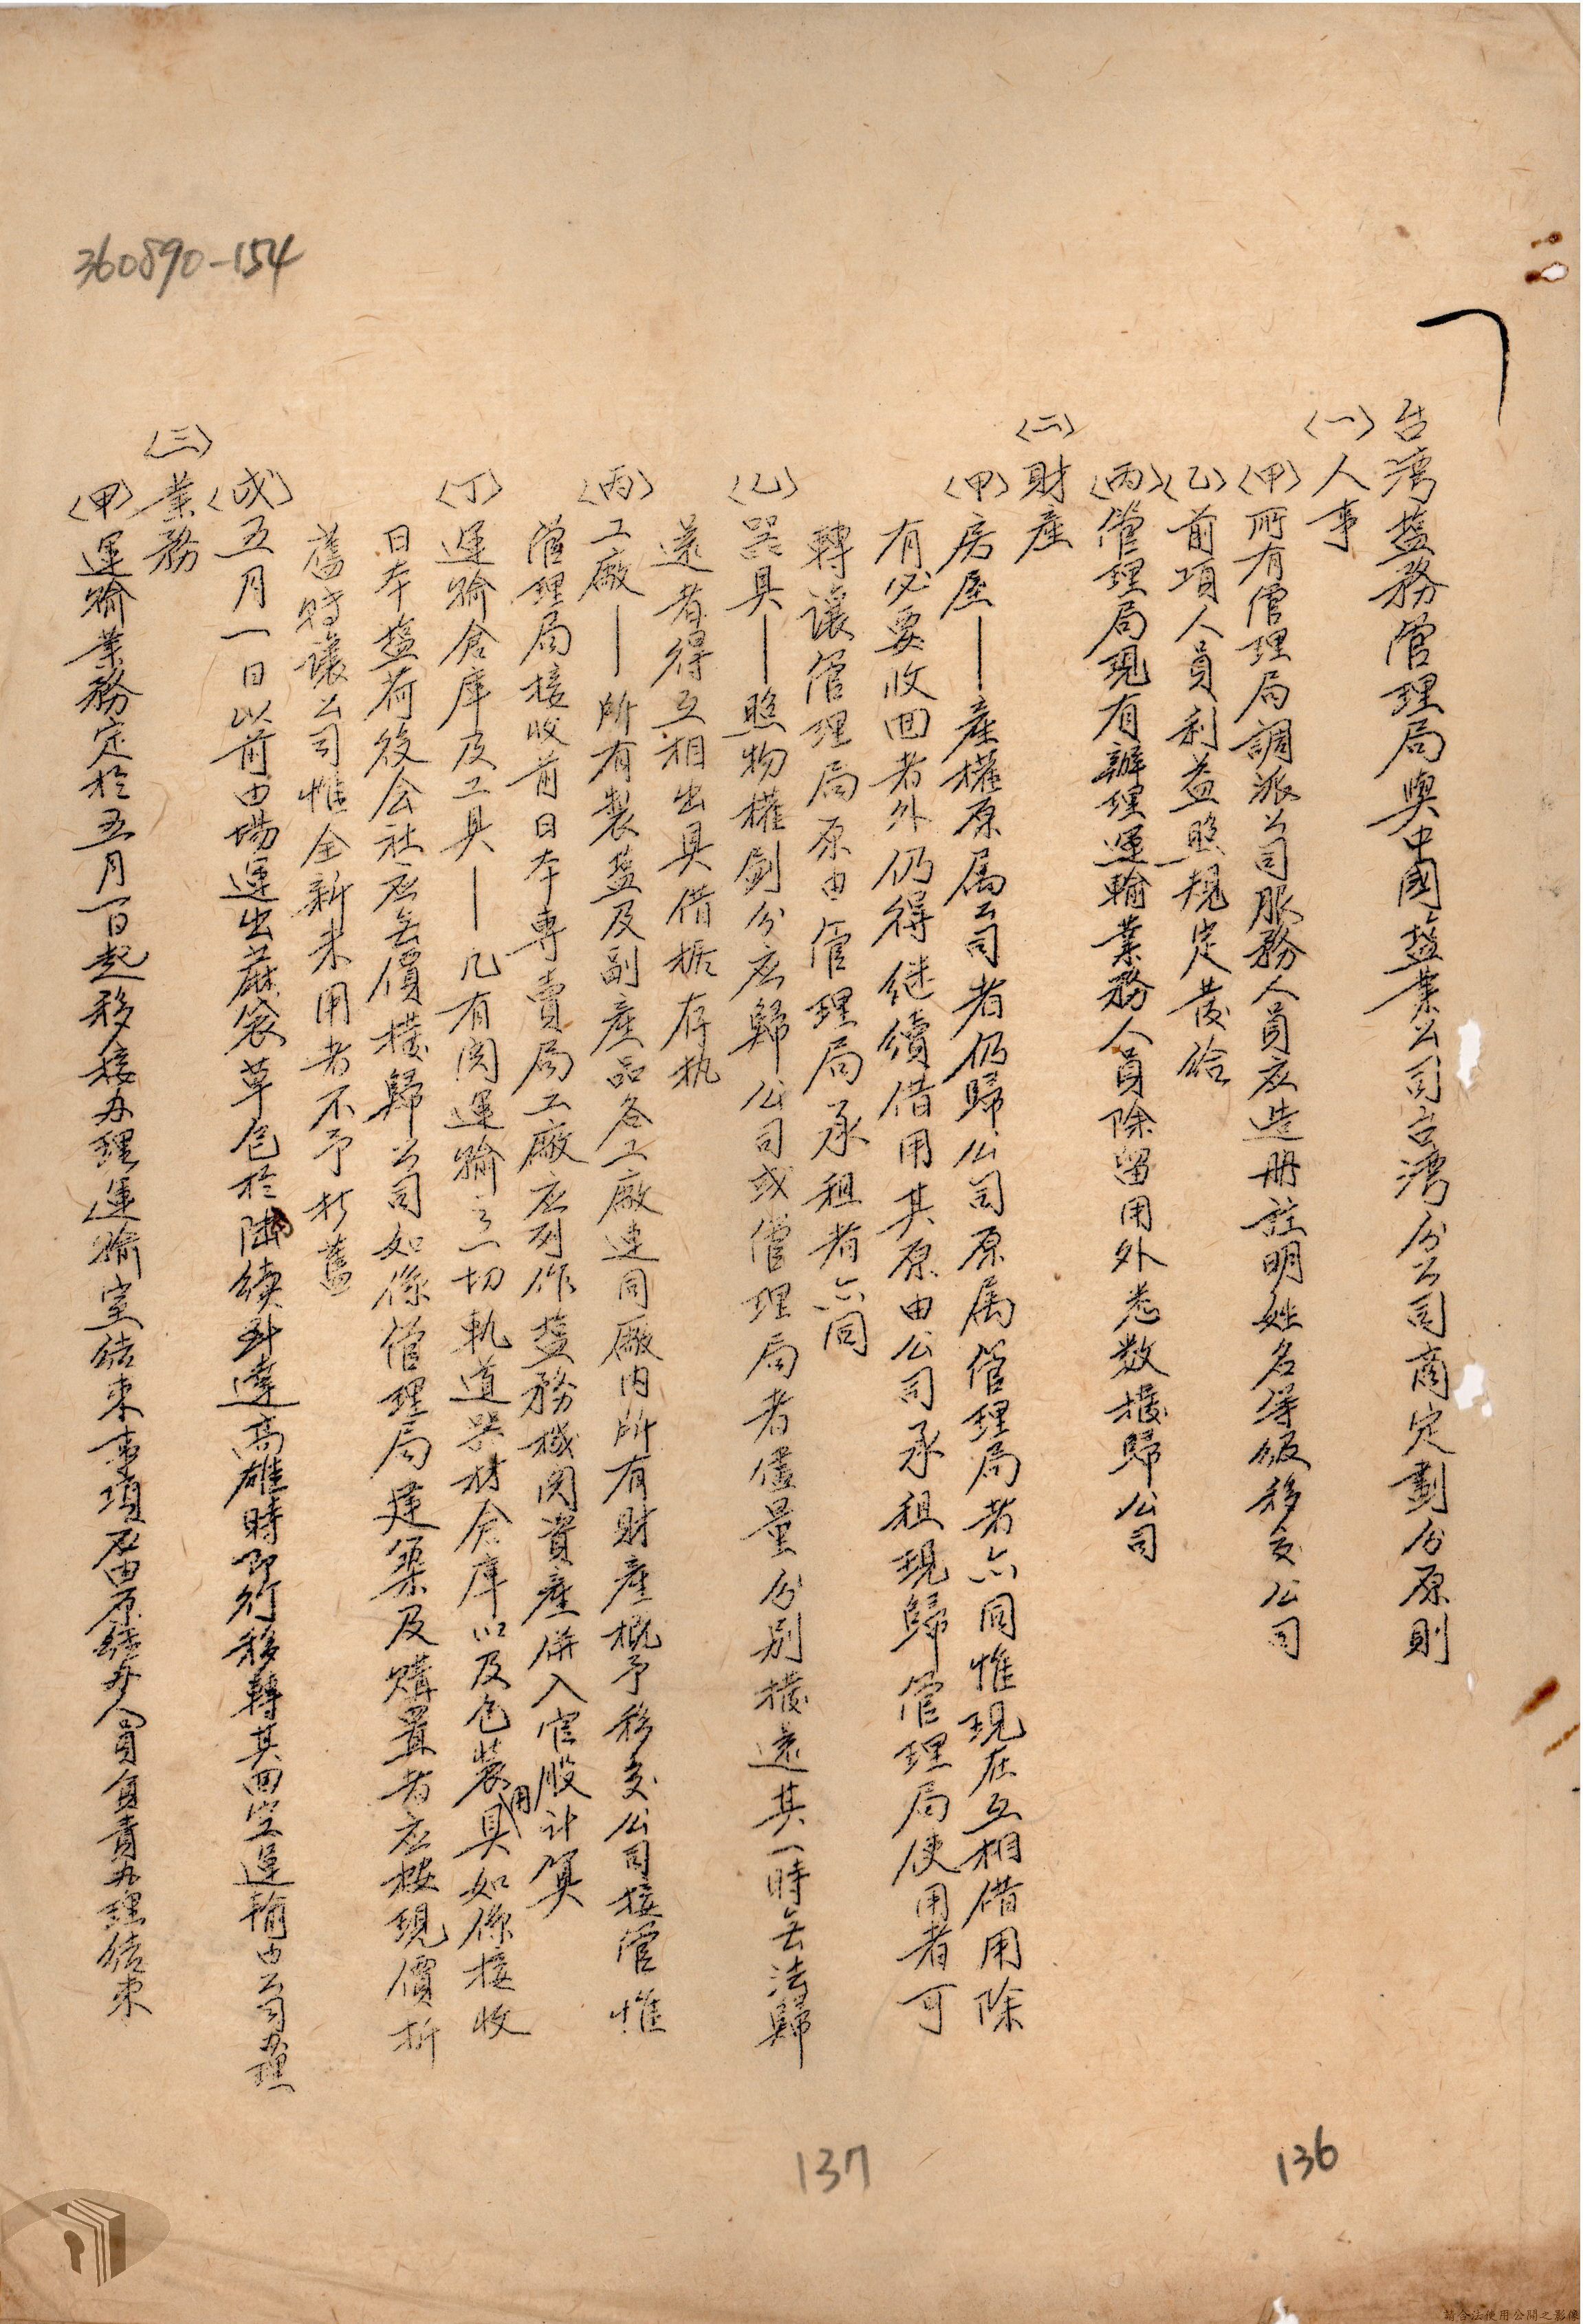 360890-154
台湾盐務管理局與中國盐業公司台湾分公司商定劃分原則
〈一〉人事
〈甲〉所有管理局調派公司服務人員应造册註明姓名等級移交公司
〈乙〉前項人員利益照規定發給
〈丙〉管理局現有辦理運輸業務人員除留用外悉数撥歸公司
〈二〉財產
〈甲〉房屋——產權原属公司者仍歸公司原属管理局者亦同惟現在互相借用除
有必要收回者外仍得继續借用其原由公司承租現歸管理局使用者可
轉讓管理局原由管理局承租者亦同
〈乙〉器具——照物權劃分应歸公司或管理局者儘量分別撥還其一時无法歸
還者得互相出具借据存执
〈丙〉工廠——所有製盐及副產品各工廠連同廠内所有財產概予移交公司接管惟
管理局接收前日本専賣局工廠应列作盐務机関資產併入官股计算
〈丁〉運輸倉庫及工具——凡有関運輸之一切軌道器材倉庫以及包裝用具如係接收
日本盐荷役会社应无價撥歸公司如係管理局建築及購置者应按現價折
舊時讓公司惟全新未用者不予折舊
〈戊〉五月一日以前由場運出蔴袋草包於陸續到達高雄時即行移轉其回空運輸由公司办理
〈三〉業務
〈甲〉運輸業務定於五月一日起移接办理運輸室結束事項应由原経办人員負責办理結束
137
136
請合法使用公開之影像